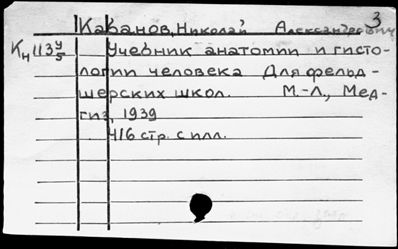 3
Кабанов, Николай Александрович
Кн 113 у/5 Учебник анатомии и гисто-
логии человека Для фельд-
шерских школ. М.-Л., Мед-
гиз, 1939
416 стр. с илл.